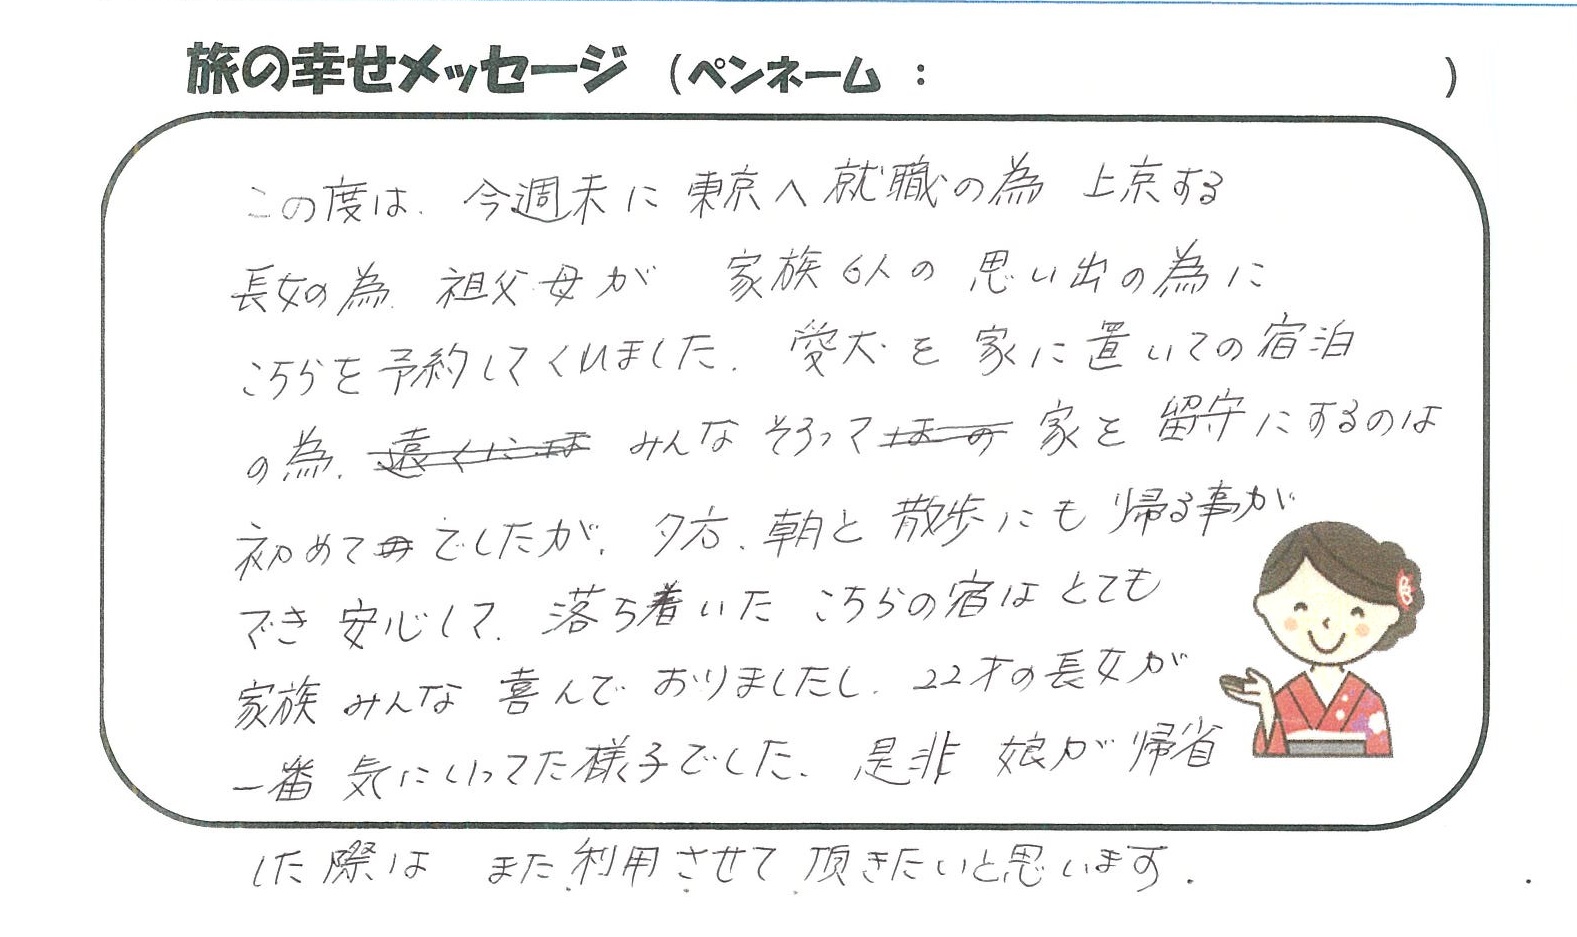 旅の幸せメッセージ (ペンネーム : )
この度は、今週末に東京へ就職の為 上京する
長女の為、祖父母が 家族6人の思い出の為に
こちらを予約してくれました。愛犬を家に置いての宿泊
の為、遠くには みんなそろって ほの 家を留守にするのは
初めて毎でしたが、夕方、朝と散歩にも帰る事が
でき安心して、落ち着いたこちらの宿はとても
家族みんな喜んでおりましたし、22才の長女が
一番気にいってた様子でした。是非 娘が帰省
した際は また利用させて頂きたいと思います。